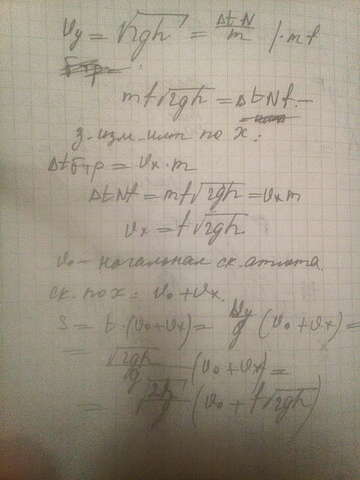 υy = √2gh = Δt·N/m | · mf
mf√2gh = ΔtNf. –
з. изм. имп по x:
ΔtFтр = υx · m
ΔtNf = mf√2gh = υx m
υx = f√2gh
υ₀ – начальная ск.
ск. по x = υ₀ + υx.
S = t·(υ₀ + υx) = υy/g (υ₀ + υx) =
= √2gh/g (υ₀ + υx) =
= √2h/g (υ₀ + f√2gh)